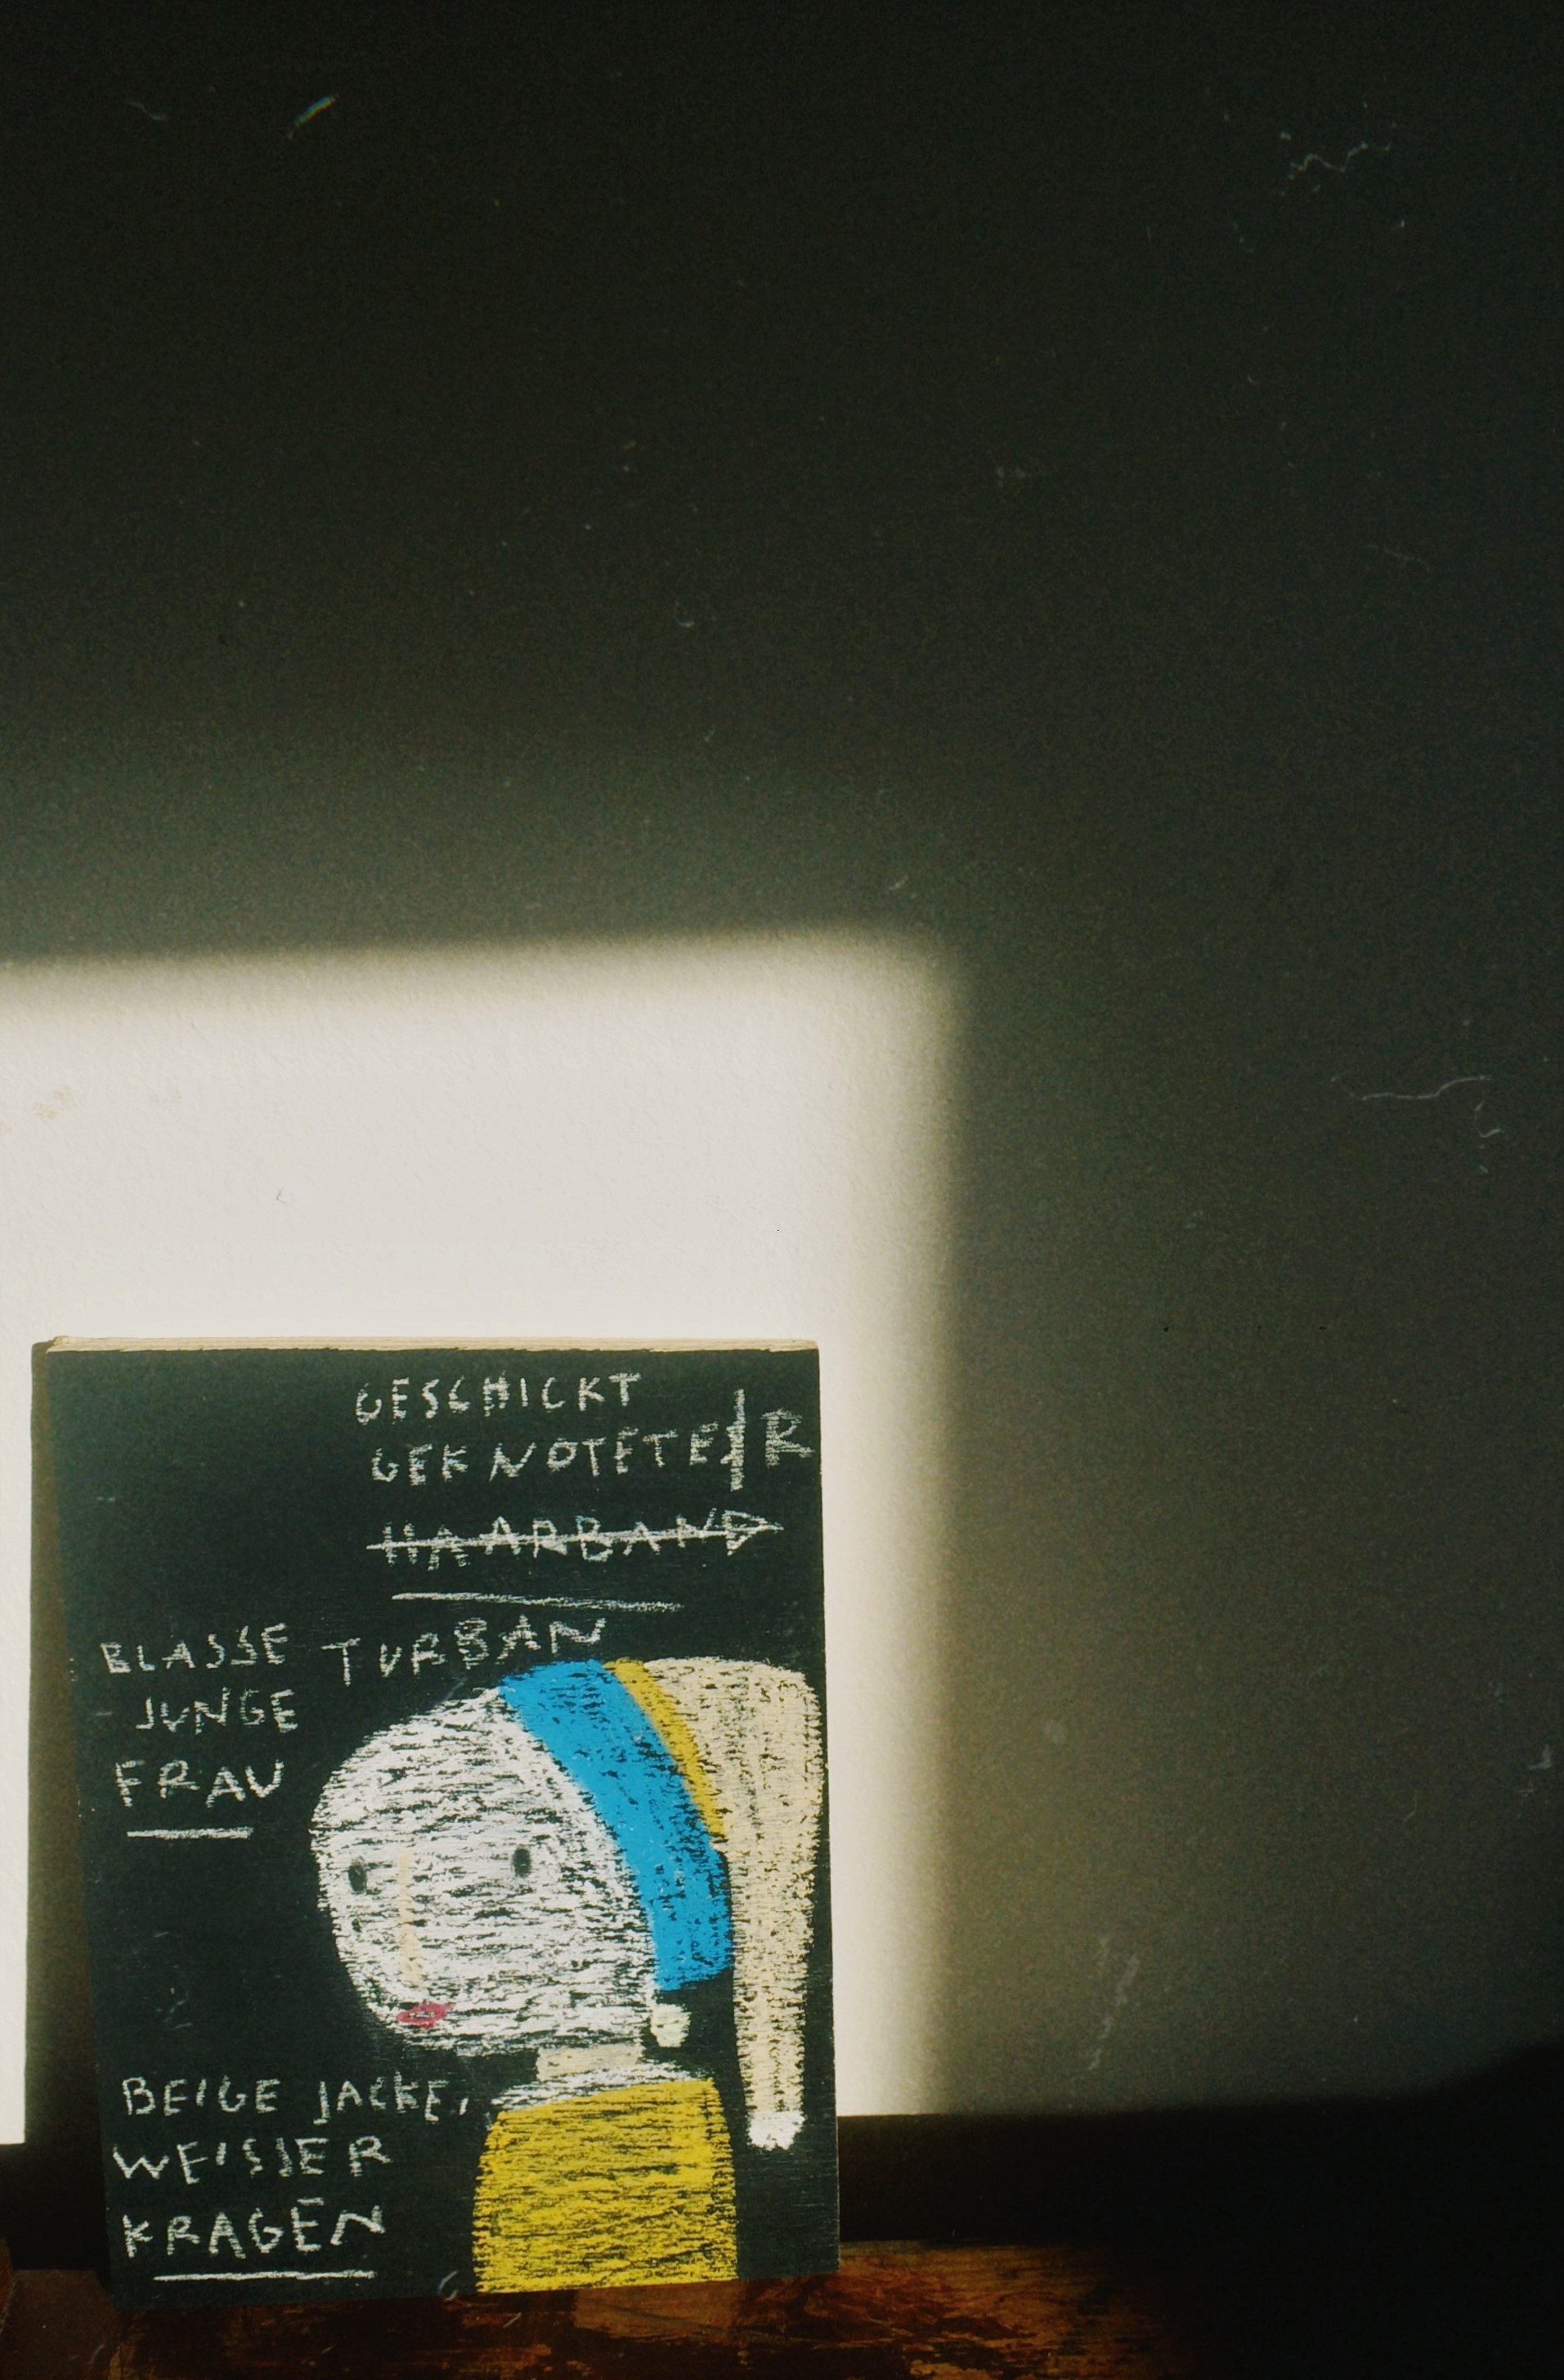 GESCHICKT
GEKNOTETER
HAARBAND
TURBAN
BLASSE
JUNGE
FRAU
BEIGE JACKE,
WEISSER
KRAGEN